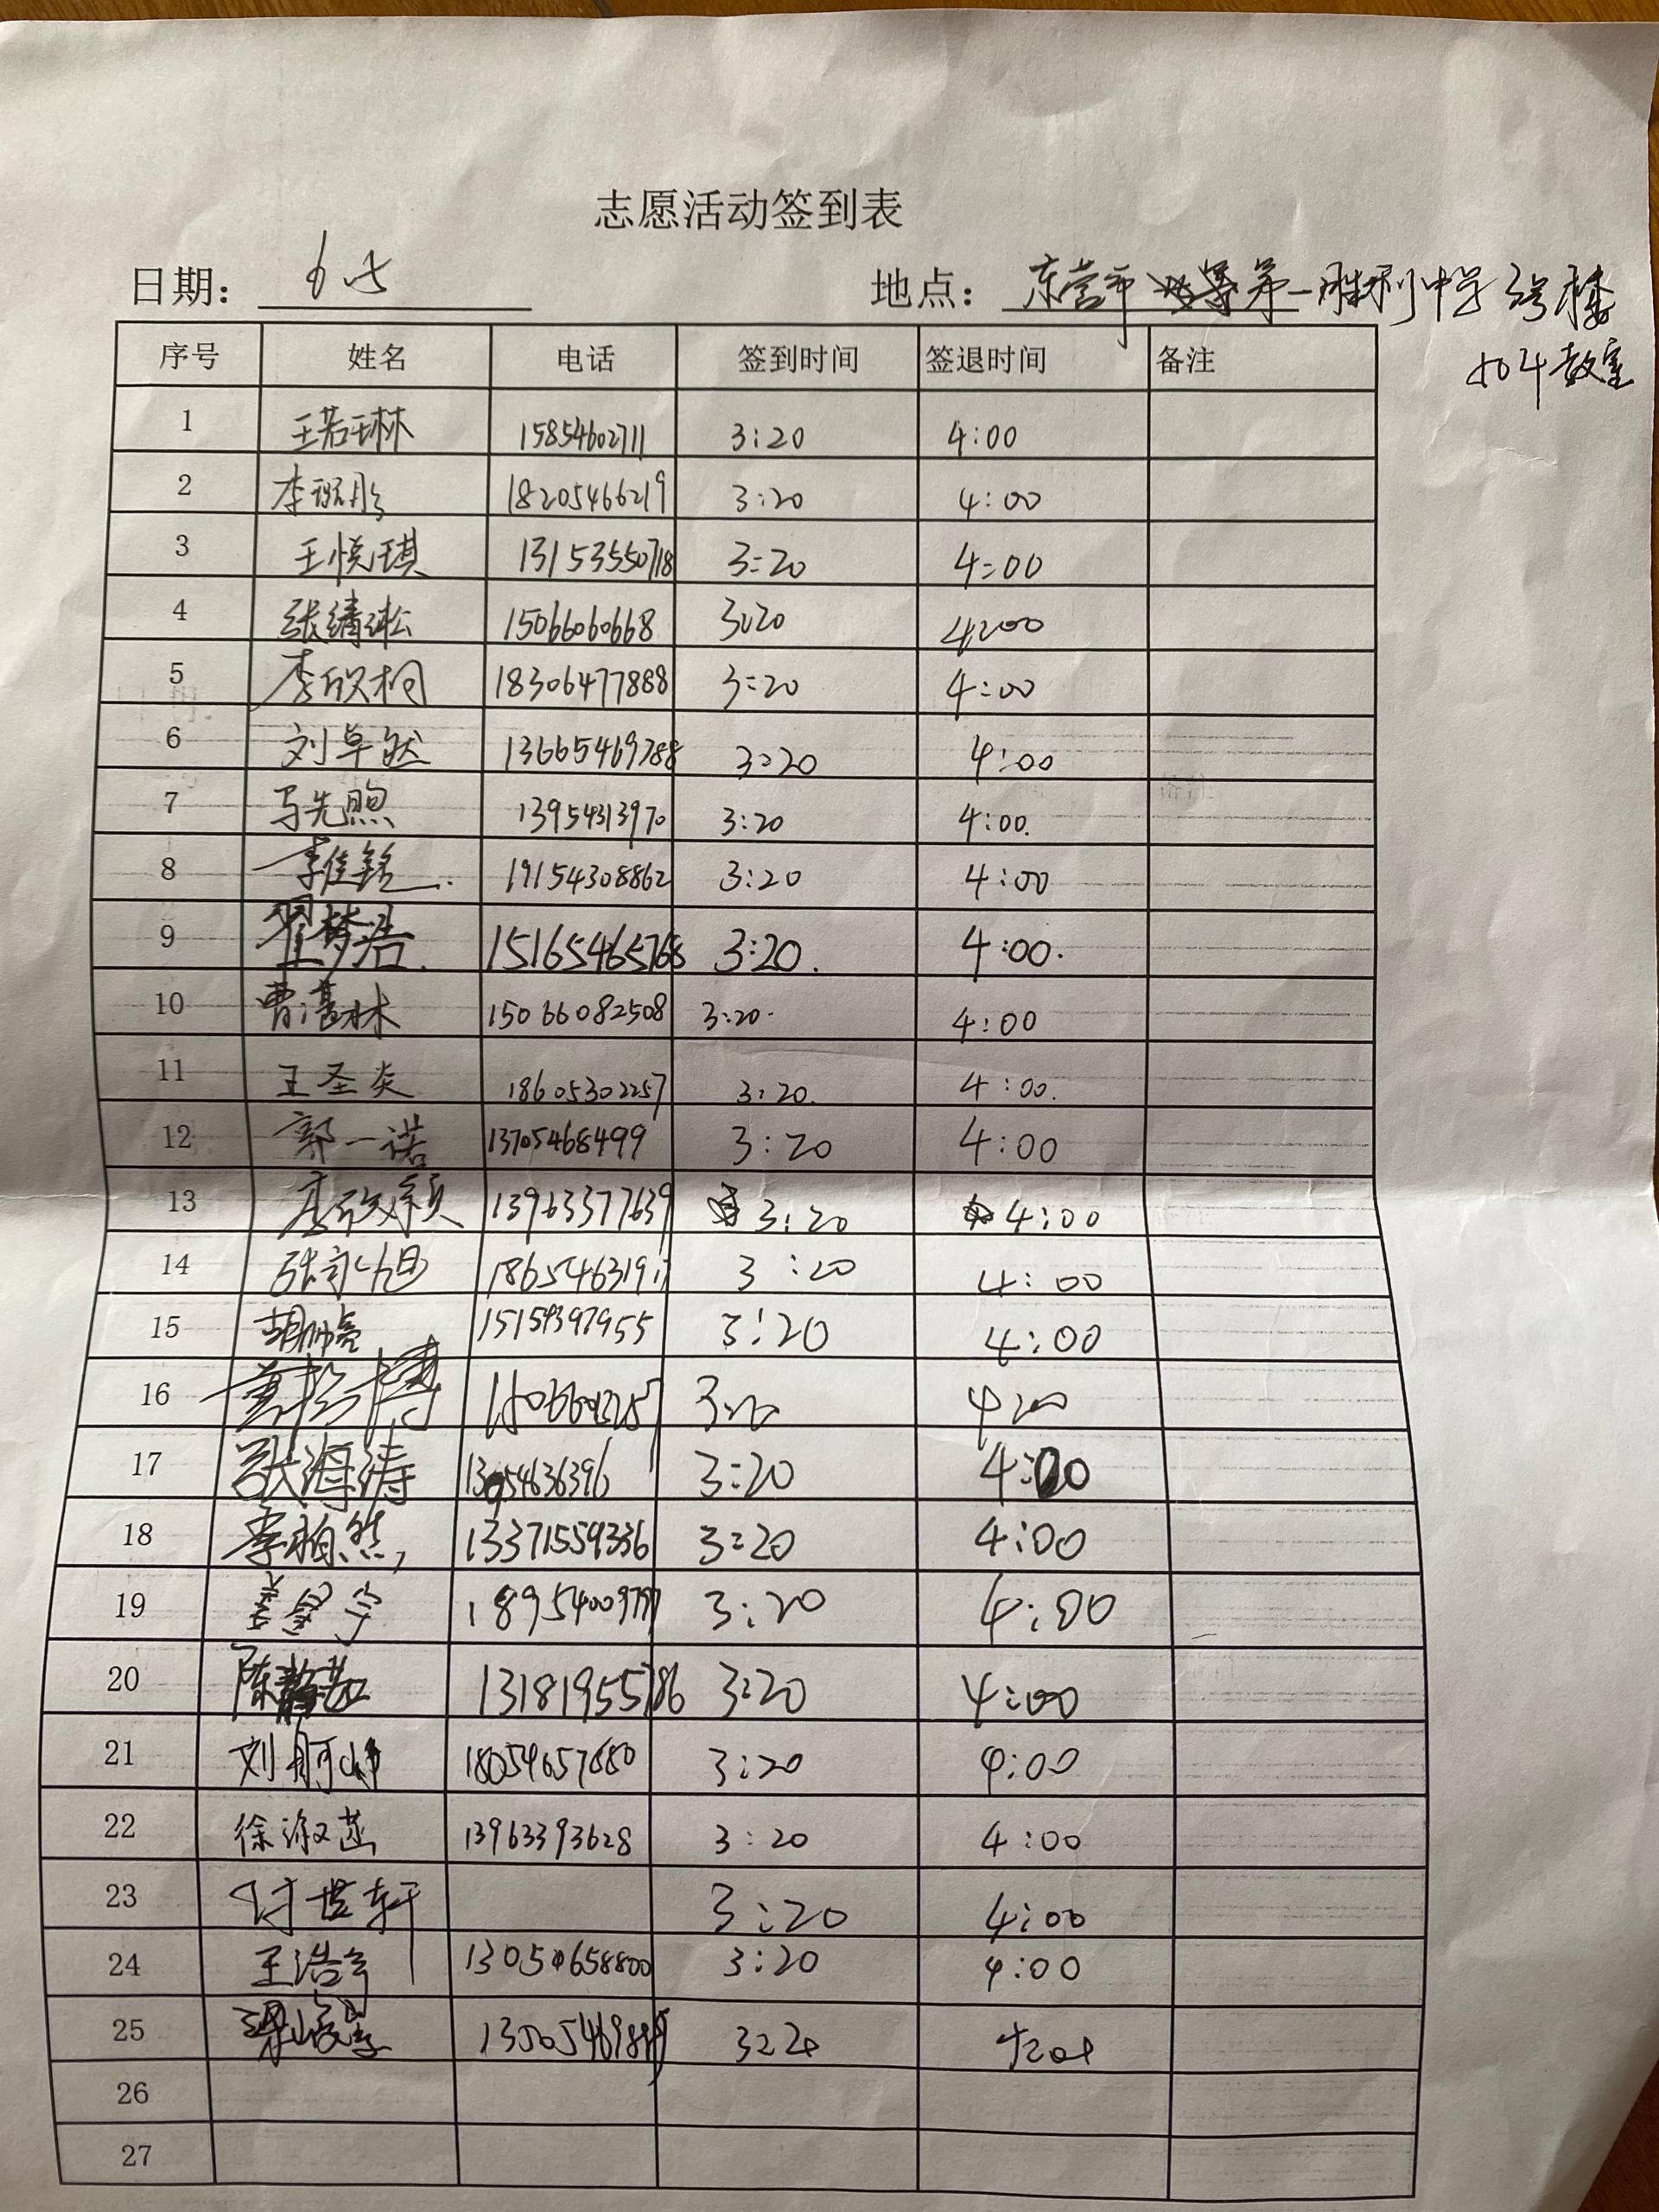 志愿活动签到表
日期： 6.5 地点： 东营市 第一胜利中学 3号楼
104教室
序号 姓名 电话 签到时间 签退时间 备注
1 王若琳 15854602711 3:20 4:00
2 18205466219 3:20 4:00
3 王悦琪 13153550718 3:20 4:00
4 张清淞 15066060668 3:20 4:00
5 李欣桐 18306477888 3:20 4:00
6 刘卓然 13665469788 3:20 4:00
7 马先煦 13954313970 3:20 4:00.
8 李佳铭 19154308862 3:20 4:00
9 翟梦浩. 15165465768 3:20. 4:00.
10 曹湛林 15066082508 3:20. 4:00
11 王圣炎 18605302257 3:20. 4:00.
12 郭一诺 13705468499 3:20 4:00
13 13963377639 3:20 4:00
14 3:20 4:00
15 3:20 4:00
16 3:20 4:00
17 张海涛 3:20 4:00
18 李相然 13371559336 3:20 4:00
19 姜星宇 3:20 4:00
20 陈静茹 13181955786 3:20 4:00
21 18054657880 3:20 4:00
22 徐淑菡 13963393628 3:20 4:00
23 付世轩 3:20 4:00
24 王浩宇 3:20 4:00
25 梁峻豪 3:20
26
27